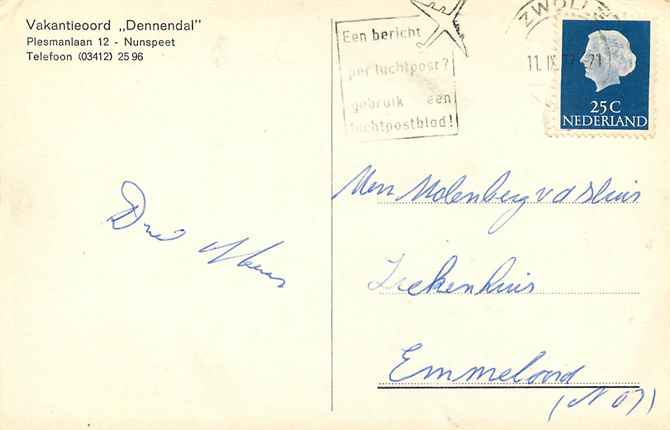 Vakantieoord „Dennendal"
Plesmanlaan 12 - Nunspeet
Telefoon (03412) 25 96
Een bericht
per luchtpost?
gebruik een
luchtpostblad!
ZWOLLE
11.IX
25 C
NEDERLAND
Molenberg v d Sluis
Ziekenhuis
Emmeloord